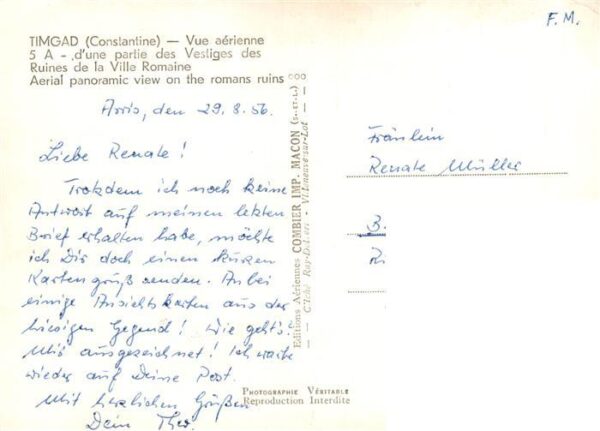 F.M.
TIMGAD (Constantine) — Vue aérienne
5 A - d'une partie des Vestiges des
Ruines de la Ville Romaine
Aerial panoramic view on the romans ruins
Arris, den 29.8.56.
Liebe Renate!
Trotzdem ich noch keine
Antwort auf meinen letzten
Brief erhalten habe, möchte
ich Dir doch einen kurzen
Kartengruß senden. Anbei
einige Ansichtskarten aus der
hiesigen Gegend! Wie geht's?
Mir ausgezeichnet! Ich warte
wieder auf Deine Post.
Mit herzlichen Grüßen
Dein Theo.
Editions Aériennes COMBIER IMP. MACON (S.-ET-L.)
Villeneuve-sur-Lot
PHOTOGRAPHIE VÉRITABLE
Reproduction Interdite
Fräulein
Renate Müller
B.
R